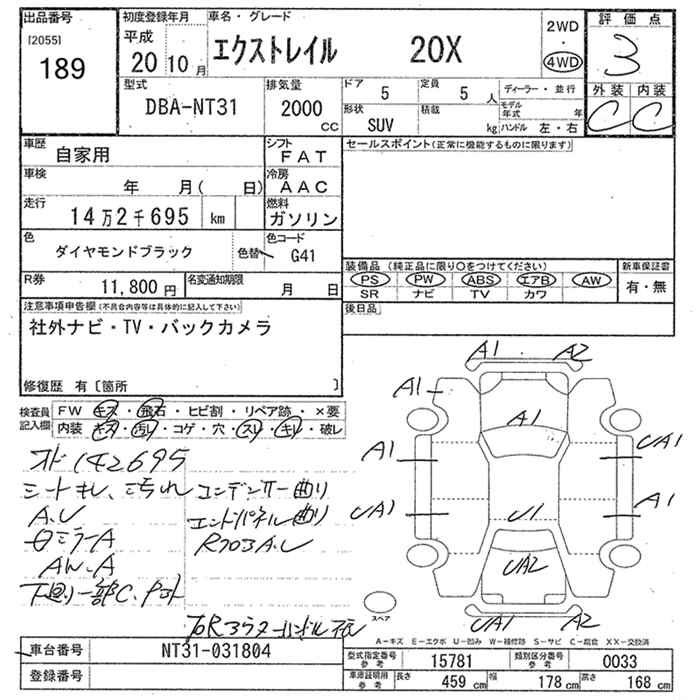 出品番号
[2055]
189
初度登録年月
平成
20 10月
車名・グレード
エクストレイル 20X
2WD
・
4WD
評価点
3
外装 内装
C C
型式
DBA-NT31
排気量
2000
cc
ドア
5
定員
5 人
形状
SUV
積載
kg
ディーラー・並行
モデル
年式 年
ハンドル 左・右
車歴
自家用
シフト
FAT
車検
年 月( 日)
冷房
AAC
走行
14万2千695 km
燃料
ガソリン
色
ダイヤモンドブラック
色替
色コード
G41
R券
11,800円
名変通知期限
月 日
セールスポイント(正常に機能するものに限ります)
装備品 (純正品に限り○をつけてください)
PS PW ABS エアB AW
SR ナビ TV カワ
新車保証書
有・無
後日品
注意事項申告欄(不具合内容等は具体的に記入して下さい)
社外ナビ・TV・バックカメラ
修復歴 有〔箇所 〕
検査員
記入欄
FW キズ・飛石・ヒビ割・リペア跡・×要
内装 キズ・汚レ・コゲ・穴・スリ・キレ・破レ
メド142695
シートキレ、汚れ
A.U
ミラーA
AW.A
下廻り一部C、
コンデンサー曲り
エンドパネル曲り
Rフロア A.U
A1 A2
A1
A1
A1 UA1
UA1 A1
U1
UA2
UA1 A2
スペア
A−キズ E−エクボ U−凹み W−補修跡 S−サビ C−腐食 XX−交換済
車台番号
NT31-031804
登録番号
型式指定番号
参考
15781
類別区分番号
参考
0033
車庫証明用
参考
長さ 459 cm
幅 178 cm
高さ 168 cm